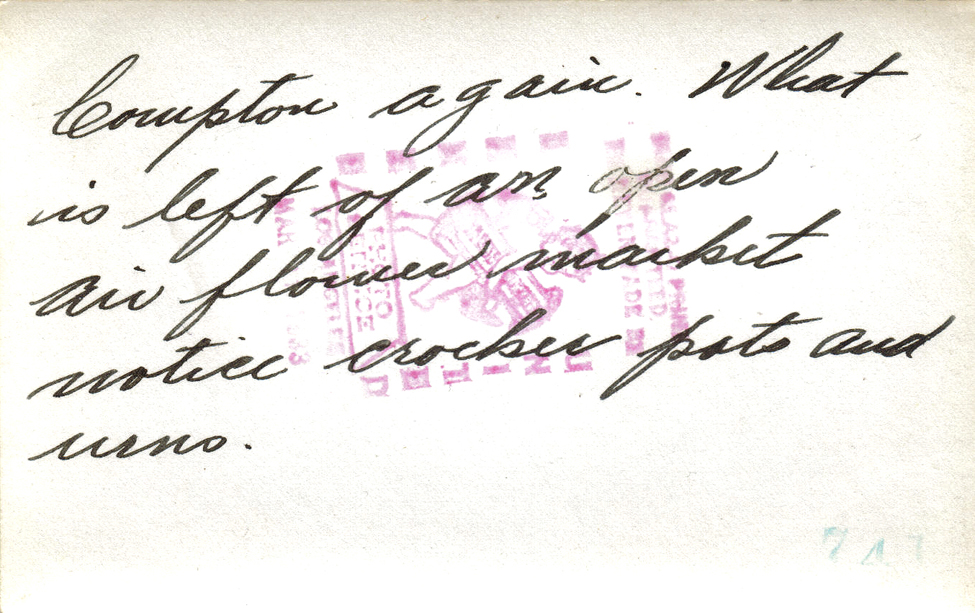 Compton again. What
is left of an open
air flower market
notice crocker pots and
urns.